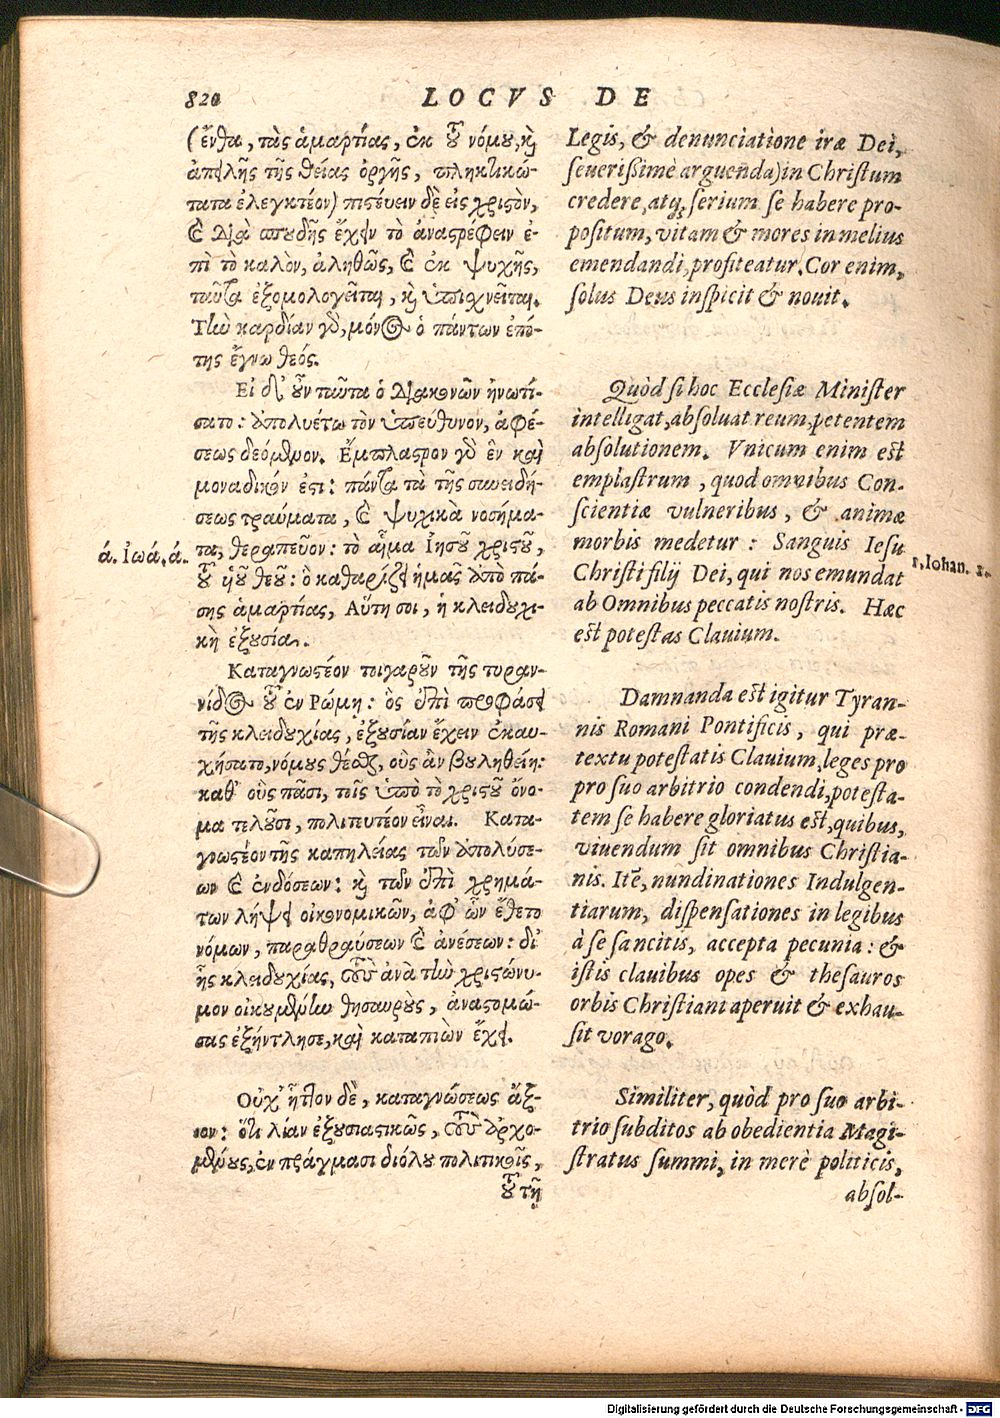 820
LOCVS DE
(ἔνθα, τὰς ἁμαρτίας, ἐκ τοῦ νόμου, καὶ
ἀπειλῆς τῆς θείας ὀργῆς, πληκτικώ-
τατα ἐλεγκτέον) πιστέυειν δὲ εἰς χριστὸν,
καὶ διὰ σπουδῆς ἔχειν τὸ ἀναστρέφειν ἐ-
πὶ τὸ καλὸν, ἀληθῶς, καὶ ἐκ ψυχῆς,
ταῦτα ἐξομολογεῖται, καὶ ὑπισχνεῖται.
Τὴν καρδίαν γὰρ, μόνος ὁ πάντων ἐπό-
της ἔγνω θεός.
Εἰ δ' οὖν ταῦτα ὁ διακονῶν ἠνωτί-
σατο: ἀπολυέτω τὸν ὑπεύθυνον, ἀφέ-
σεως δεόμενον. Ἔμπλαστρον γὰρ ἓν καὶ
μοναδικόν ἐστι: πάντα τὰ τῆς συνειδή-
σεως τραύματα, καὶ ψυχικὰ νοσήμα-
τα, θεραπεῦον: τὸ αἷμα Ιησοῦ χριστοῦ,
τοῦ υἱοῦ θεοῦ: ὃ καθαρίζει ἡμᾶς ἀπὸ πά-
σης ἁμαρτίας, Αὕτη σοι, ἡ κλειδουχι-
κὴ ἐξουσία.
ά. Ἰωά. ά.
Καταγνωστέον τοιγαροῦν τῆς τυραν-
νίδος τοῦ ἐν Ρώμη: ὃς ἐπὶ προφάσει
τῆς κλειδουχίας, ἐξουσίαν ἔχειν ἐκαυ-
χήσατο, νόμους θέσθαι, οὓς ἂν βουληθείη:
καθ' οὓς πᾶσι, τοῖς ὑπὸ τὸ χριστοῦ ὄνο-
μα τελοῦσι, πολιτευτέον εἶναι. Κατα-
γνωστέον τῆς καπηλείας τῶν ἀπολύσε-
ων καὶ ἐνδόσεων: καὶ τῶν ἐπὶ χρημά-
των λήψει οἰκονομικῶν, ἀφ' ὧν ἔθετο
νόμων, παραθραύσεων καὶ ἀνέσεων: δι'
ἧς κλειδουχίας, τοὺς ἀνὰ τὴν χριστώνυ-
μον οἰκουμένην θησαυροὺς, ἀναστομώ-
σας ἐξήντλησε, καὶ καταπιὼν ἔχει.
Οὐχ' ἧττον δὲ, καταγνώσεως ἄξ-
ιον: ὅτι λίαν ἐξουσιαστικῶς, τοὺς ἀρχο-
μένους, ἐν πράγμασι διόλου πολιτικοῖς,
τοῦ τῇ
Legis, & denunciatione iræ Dei,
seuerißimè arguenda) in Christum
credere, atq; serium se habere pro-
positum, vitam & mores in melius
emendandi, profiteatur. Cor enim,
solus Deus inspicit & nouit.
Quòd si hoc Ecclesiæ Minister
intelligat, absoluat reum, petentem
absolutionem. Vnicum enim est
emplastrum, quod omnibus Con-
scientiæ vulneribus, & animæ
morbis medetur: Sanguis Iesu
Christi filij Dei, qui nos emundat
ab Omnibus peccatis nostris. Hæc
est potestas Clauium.
1. Iohan. 1.
Damnanda est igitur Tyran-
nis Romani Pontificis, qui præ-
textu potestatis Clauium, leges pro
pro suo arbitrio condendi, potesta-
tem se habere gloriatus est, quibus,
viuendum sit omnibus Christia-
nis. Itē, nundinationes Indulgen-
tiarum, dispensationes in legibus
à se sancitis, accepta pecunia: &
istis clauibus opes & thesauros
orbis Christiani aperuit & exhau-
sit vorago.
Similiter, quòd pro suo arbi-
trio subditos ab obedientia Magi-
stratus summi, in merè politicis,
absol-
Digitalisierung gefördert durch die Deutsche Forschungsgemeinschaft - DFG